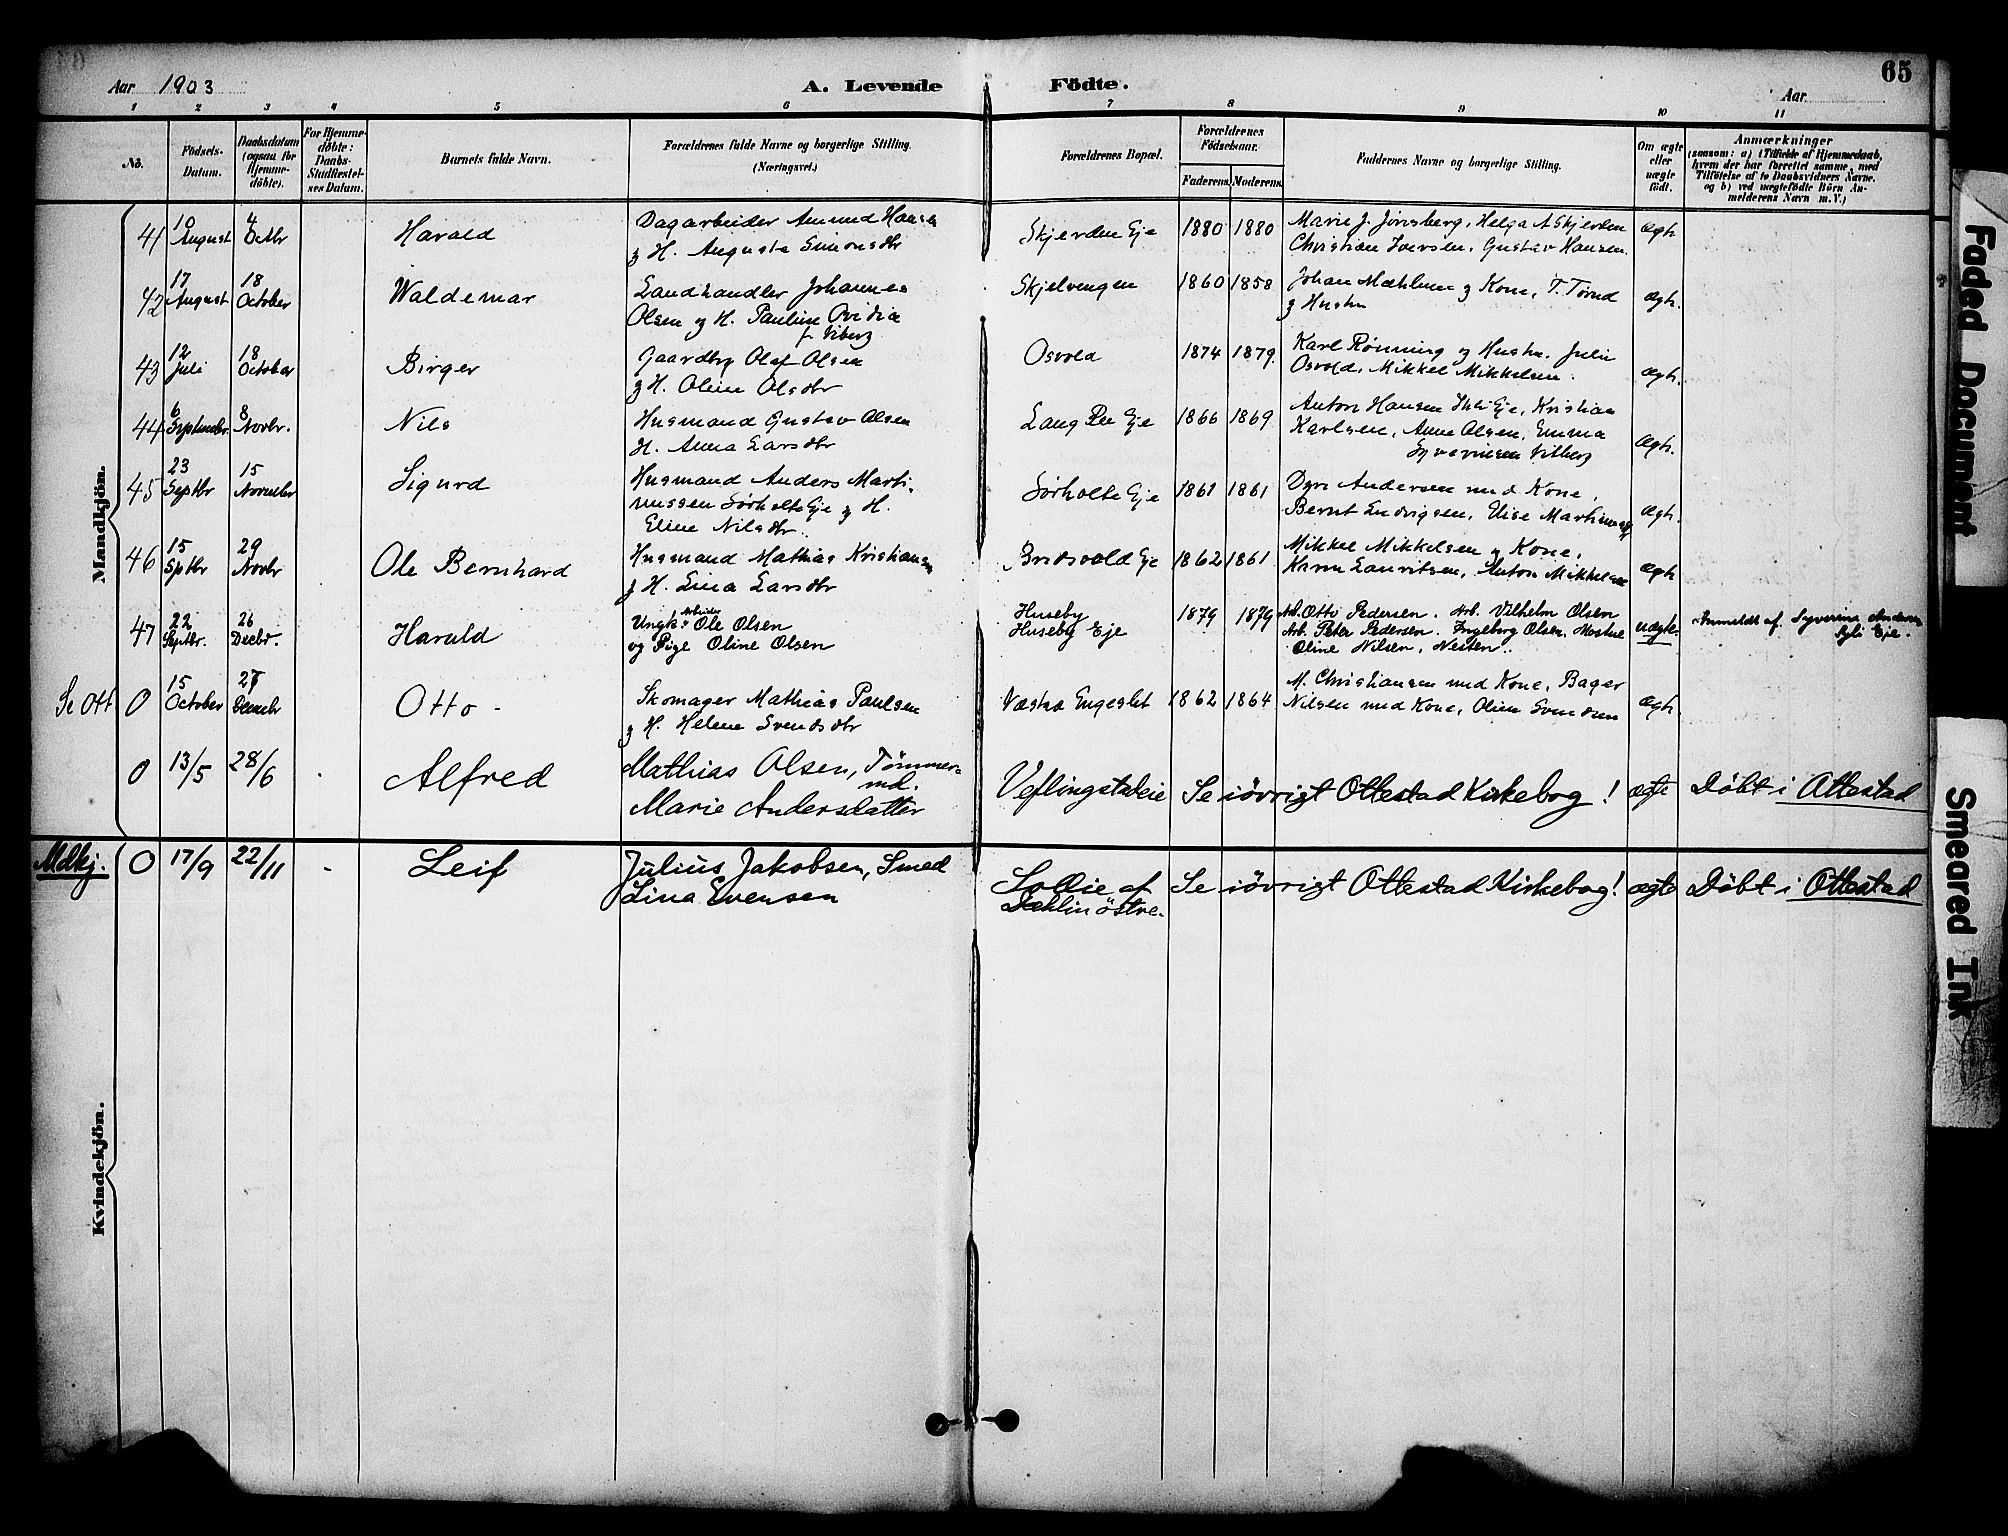 65
Aar 1903
A. Levende Födte.
Aar
1 2 3 4 5 6 7 8 9 10 11
No.
Födsels-
Datum.
Daabsdatum
(ogsaa for
Hjemme-
döbte).
For Hjemme-
döbte:
Daabs-
Stadfæstel-
ses Datum.
Barnets fulde Navn.
Forældrenes fulde Navne og borgerlige Stilling.
(Næringsvei.)
Forældrenes Bopæl.
Forældrenes
Födselsaar.
Faderens. Moderens.
Faddernes Navne og borgerlige Stilling.
Om ægte
eller
uægte
födt.
Anmærkninger
(saasom: a) i Tilfælde af Hjemmedaab,
hvem der har forrettet samme, med
Tilföielse af to Daabsvidners Navne,
og b) ved uægtefödte Börn An-
melderens Navn m. V.)
Mandkjön.
41
10
August
4
Octbr
Harald
Dagarbeider Amund Hansen
g H. Augusta Simonsdtr
Skjerden Eje
1880 1880
Marie J. Jönsberg, Helga A Skjerden
Christian Iversen, Gustav Hansen
Ægt.
42
17
August
18
October
Waldemar
Landhandler Johannes
Olsen og H. Pauline Ovidia
f. Viberg
Skjelvengen
1860 1858
Johan Mæhlum g Kone, T. Törud
g Hustru
Ægt.
43
12
Juli
18
October
Birger
Gaardbr Olaf Olsen
g H. Oline Olsdtr
Osvold
1874 1879
Karl Rønning og Hustru, Julie
Osvold, Mikkel Mikkelsen.
Ægt.
44
6
Septembr.
8
Novbr.
Nils
Husmand Gustav Olsen
H. Anna Larsdtr
Eje
1866 1869
Anton Hansen Eje, Kristian
Karlsen, Anne Olsen, Emma
Syverinsen Viberg
Ægt.
45
23
Septbr
15
Novembr
Sigurd
Husmand Anders Marti-
nussen Sørholte Eje g H.
Eline Nilsdtr.
Sørholte Eje
1861 1861
Dyre Andersen med Kone,
Bernt Ludvigsen, Elise Martinussen
Ægt.
46
15
Sptbr
29
Novbr
Ole Bernhard
Husmand Mathias Kristiansen
g H. Lina Larsdtr
Bridsvold Eje
1862 1861
Mikkel Mikkelsen g Kone,
Karen Lauritsen, Anton Mikkelsen
Ægt
47
22
Septbr.
26
Decbr.
Harald
Arbeider
Ungk. Ole Olsen
og Pige Oline Olsen
Huseby
Huseby Eje
1879 1879
Arb. Otto Pedersen. Arb. Vilhelm Olsen
Arb. Peter Pedersen. Ingeborg Olsen,
Oline Nilsen, Nesten.
uægte.
Anmeldt af Syverine Andersen
Eje.
Se Ott
0
15
October
27
Decembr
Otto
Skomager Mathias Paulsen
g H. Helene Svendsdtr
Væstad Engeslet
1862 1864
M. Christiansen med Kone, Bager
Nilsen med Kone, Oline Svendsen
Ægt.
0
13/5
28/6
Alfred
Mathias Olsen, Tömmer-
md.
Marie Andersdatter
Veflingstadeie
Se iövrigt Ottestad Kirkebog!
ægte
Döbt i Ottestad
Mdkj.
0
17/9
22/11
Leif
Julius Jakobsen, Smed
Lina Evensen
af
Dæhlin östre.
Se iövrigt Ottestad Kirkebog!
ægte
Döbt i Ottestad
Kvindekjön.
Faded Document
Smeared Ink